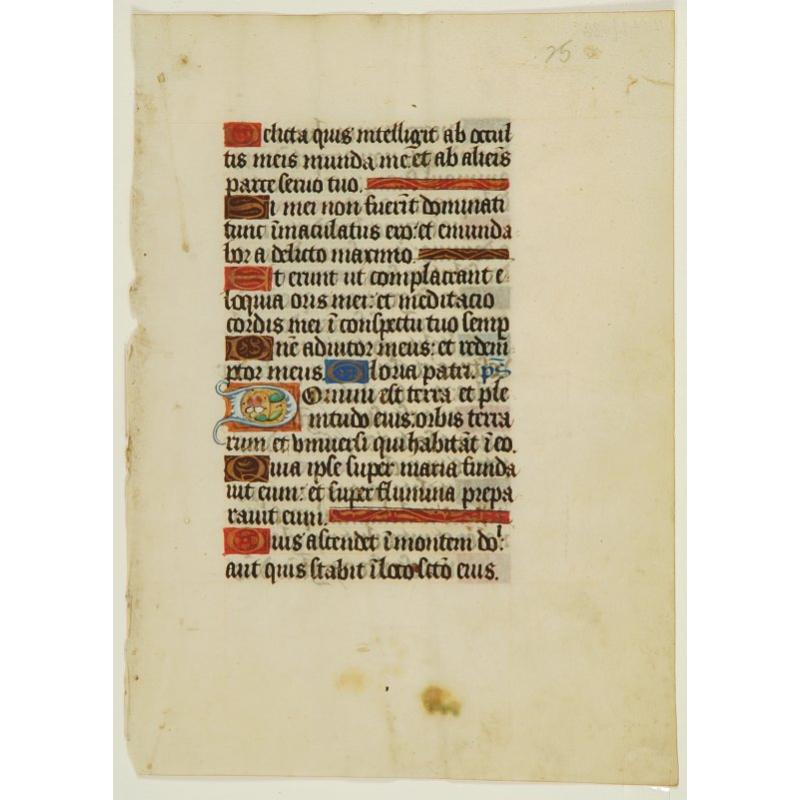 25
Delicta quis intelligit ab occul
tis meis munda me: et ab alieis
parce servo tuo.
Si mei non fuerīt dominati
tunc īmaculatus ero: et emunda
bor a delicto maximo.
Et erunt ut complaceant e
loquia oris mei: et meditacio
cordis mei ī conspectu tuo semp
Dn̄e adiutor meus: et redem
ptor meus. Gloria patri. ps̄
Domini est terra et ple
nitudo eius: orbis terra
rum et universi qui habitāt ī eo.
Quia ipse super maria funda
vit eum: et super flumina prepa
ravit eum.
Quis ascendet ī montem do:
aut quis stabit ī loco scto eius.